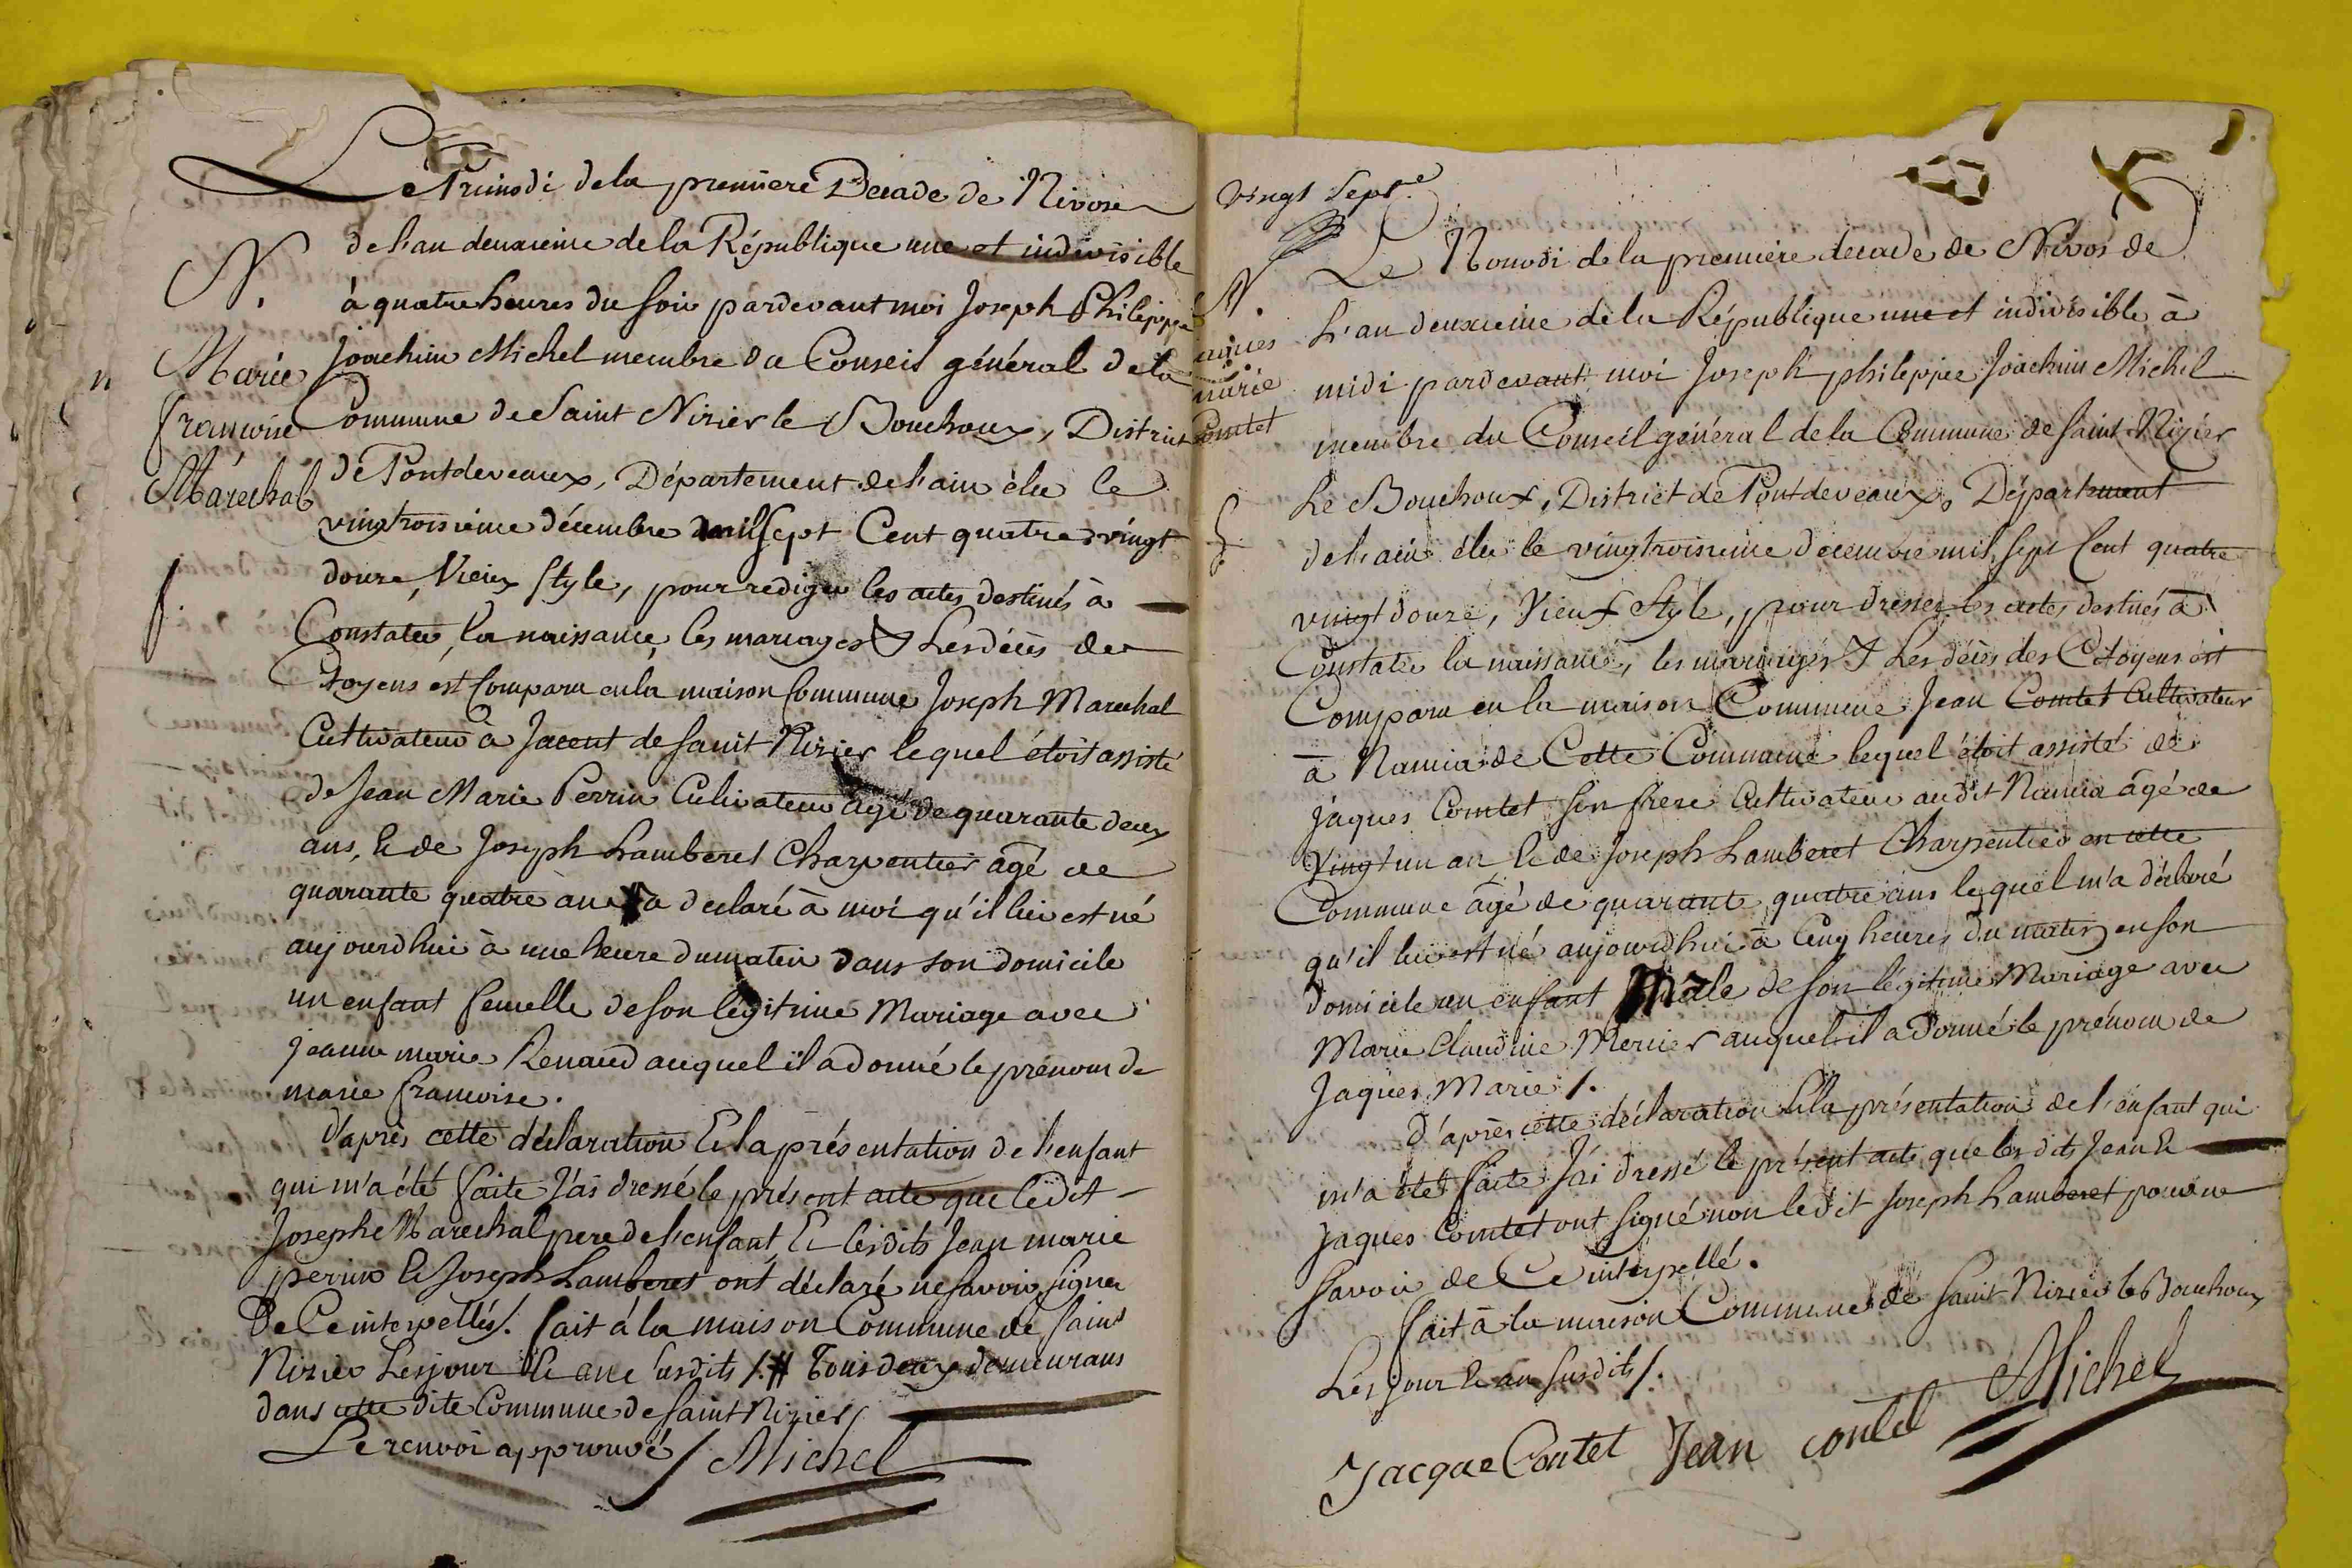 Le Primodi de la premiere Decade de Nivose
de l'an deuxieme de la République une et indivisible
N. à quatre heures du soir pardevant moi Joseph Philippe
Marie Joachim Michel membre du Conseil général de la
françoise Commune de Saint Nizier le Bouchoux, District
Maréchal de Pontdeveaux, Département de l'ain élu le
vingtroisieme décembre mil sept Cent quatre vingt
douze, Vieux Style, pour rediger les actes destinés à
Constater, la naissance, les mariages & Les décès des
Citoyens est Comparu en la maison Commune Joseph Marechal
Cultivateur à Jacent de saint Nizier lequel étoit assisté
de Jean Marie Perrin Cultivateur agé de quarante deux
ans, & de Joseph Lamberet Charpentier âgé de
quarante quatre ans # a declaré à moi qu'il lui est né
aujourdhui à une heure du matin dans son domicile
un enfant femelle de son légitime Mariage avec
jeanne marie Renaud auquel il a donné le prénom de
marie francoise.
d'après cette déclaration & la présentation de l'enfant
qui m'a été faite J'ai dressé le présent acte que ledit
Joseph Marechal pere de l'enfant & lesdits Jean marie
perrin & Joseph Lamberet ont déclaré ne savoir signer
de Ce interpellés/. fait à la maison Commune de saint
Nizier Les jour & an susdits /. # Tous deux demeurans
dans cette dite Commune de saint Nizier/
Le renvoi approuvé / Michel
vingt sept.e
Le Nonodi de la premiere decade de Nivos de
N. L'an deuxieme de la République une et indivisible à
marie midi pardevant moi Joseph philippe Joachim Michel
Comtet membre du Conseil général de la Commune de saint Nizier
Le Bouchoux, District de Pontdeveaux, Département
de l'ain élu le vingtroisieme decembre mil sept Cent quatre
vingt douze, Vieux Style, pour dresser les actes destinés à
Constater la naissance, les mariages & Les décès des Citoyens est
Comparu en la maison Commune Jean Comtet Cultivateur
à Namia de Cette Commune lequel étoit assisté de
Jaques Comtet son frere Cultivateur audit Namia âgé de
Vingt un an, & de Joseph Lamberet Charpentier en cette
Commune âgé de quarante quatre ans lequel m'a déclaré
qu'il lui est né aujourdhui à Cinq heures du matin en son
domicile un enfant Mâle de son légitime Mariage avec
Marie Claudine Mercier auquel il a donné le prénom de
Jaques Marie /.
D'après cette déclaration & la présentation de l'enfant qui
m'a été faite J'ai dressé le présent acte que les dits Jean &
Jaques Comtet ont signé non ledit Joseph Lamberet pour ne
savoir de Ce interpellé.
fait à la maison Commune de Saint Nizier le Bouchoux
Les jour & an susdits /.
Michel
Jacque Contet Jean contet